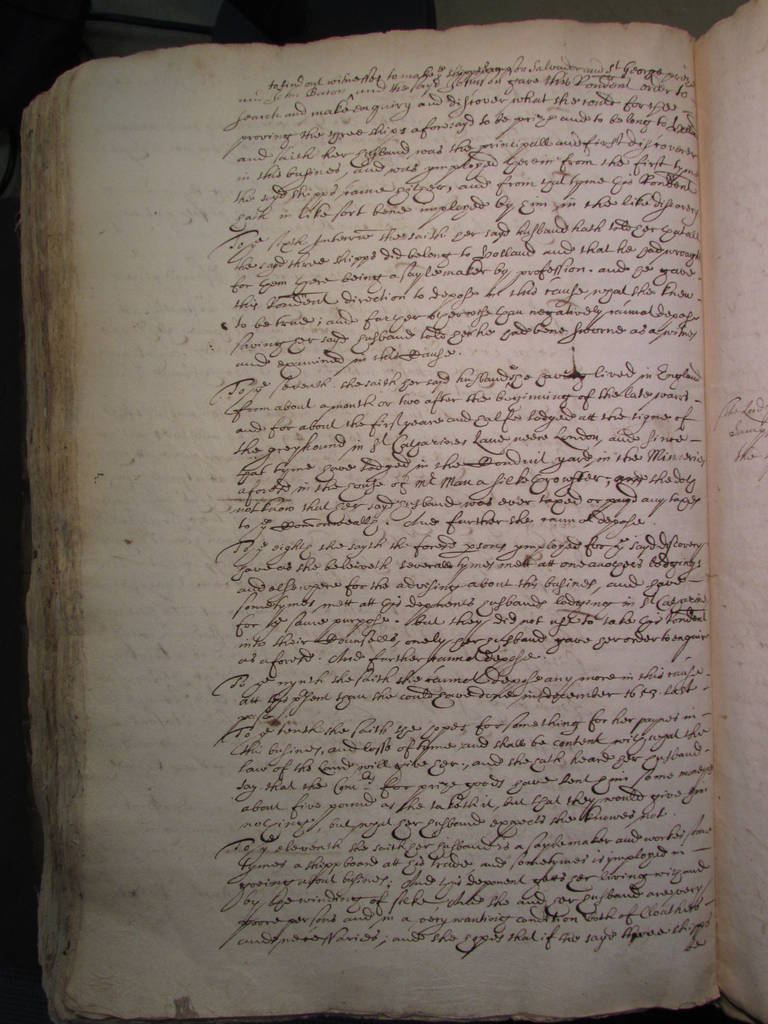 to find out witnesses to make the shipps Sampson Salvador and St George prize
and the said Ottmson gave this Rendent order to
search and make enquiry and discover what she could for the
proving the three ships aforesaid to be prize and to belong to Holland
and saith her husband was the principall and first discoverer
in this busines, and was imployed therein from the first tyme
the said shipps came hither, and from that tyme this Rendent
hath in like sort bene imployed by him in the like discovery
To ye sixth Interrie she saith her said husband hath told her that all
the said three shipps did belong to Holland and that he had wrought
for them there being a saylemaker by profession. and he gave
this Rendent direction to depose in this cause, what she knew
to be true, and further otherwise than negatively cannot depose
saving her said husband told her he had bene sworne as a witnes
and examined in this Cause.
To ye seventh she saith her said husband have lived in England
from about a month or two after the beginning of the late warr
and for about the first yeare and halfe lodged att the signe of
the greyhound in St Catharines Lane neere London, and since
that tyme have lodged in the Conduit yard in the Minories
aforesd in the house of Mr Man a silke throwster, and she doth
not know that her said husband was ever taxed or paid any taxes
to ye Commonwealth. And further she cannot depose.
To ye eighth she sayth the foresd psons imployed for ye said discovery
have as she beleiveth severall tymes mett att one anothers lodgings
and elsewhere for the advising about this busines, and have
sometymes mett att this deponents husbands lodging in St Catharins
for ye same purpose. But they did not use to take this Rendent
into their Counsells, onely her husband gave her order to enquire
as aforesd. And further cannot depose.
To ye nynth she saith she cannot depose any more in this cause
att this psent than she could have done in december 1653. last
past.
To ye tenth she saith she hopes for something for her paynes in
this busines, and losse of tyme and shall be content with what the
law of the Land will give her, and she hath heard her husband
say that the Comrs for prize goods have lent him some moneys
about five pound as she taketh it, but that they would give him
nothing, but what her husband expects she knowes not.
To ye eleventh she saith her husband is a saylemaker and workes some
tymes a shippboard att his trade and sometymes is imployed in
goeing about busines, And this deponent getts her living
by the winding of silke, And she and her husband are very
poore persons and in a very wanting condition both of Cloathes
and necessaries, and she hopes that if the said three shipps
be